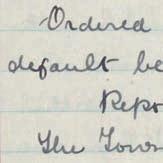 Ordered
default be
Repo
The Town